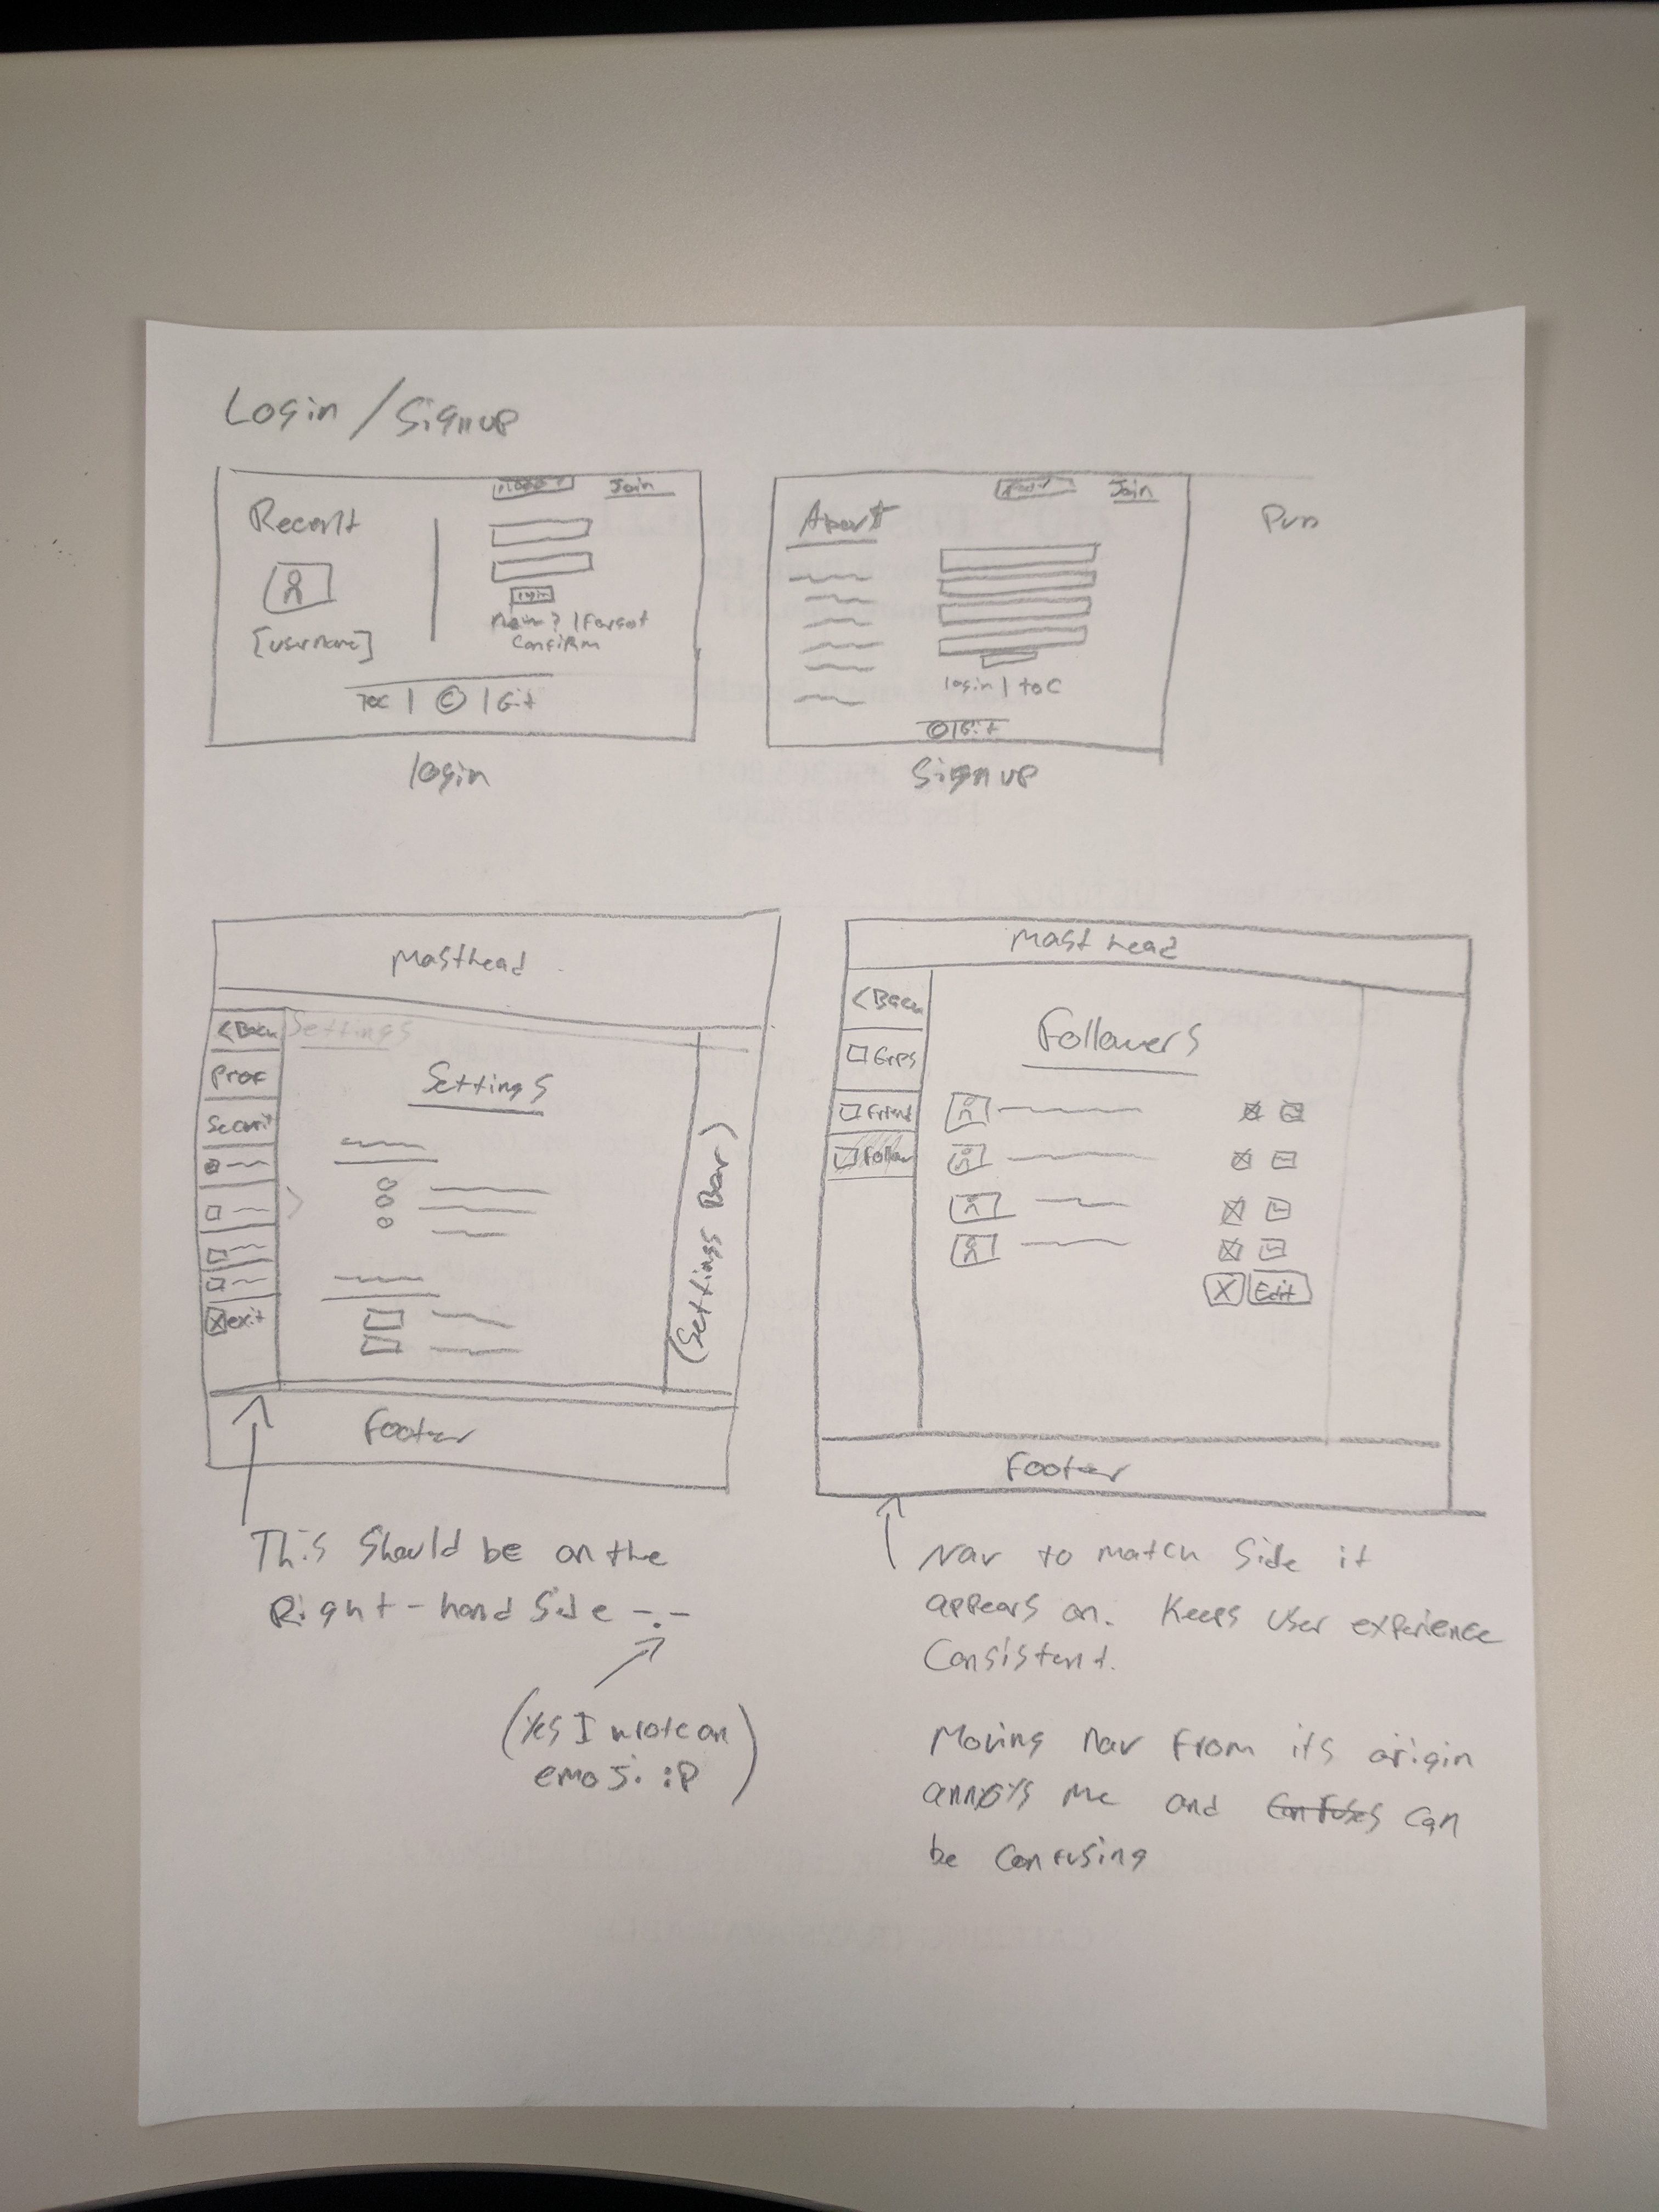 Login / Signup
Join
Recent
[username]
login
| Forgot
Confirm
Toc | © | Git
login
Join
About
login | toc
©|Git
Signup
Masthead
<Back
Settings
Prof
Settings
Securit
exit
(Settings Bar)
Footer
This Should be on the
Right-hand Side -.-
(Yes I wrote an
emoji :P)
Masthead
<Back
Followers
Grps
Friend
Follow
X Edit
Footer
Nav to match Side it
appears on. Keeps User experience
Consistent.
Moving Nav From its origin
annoys me and Confuses can
be Confusing